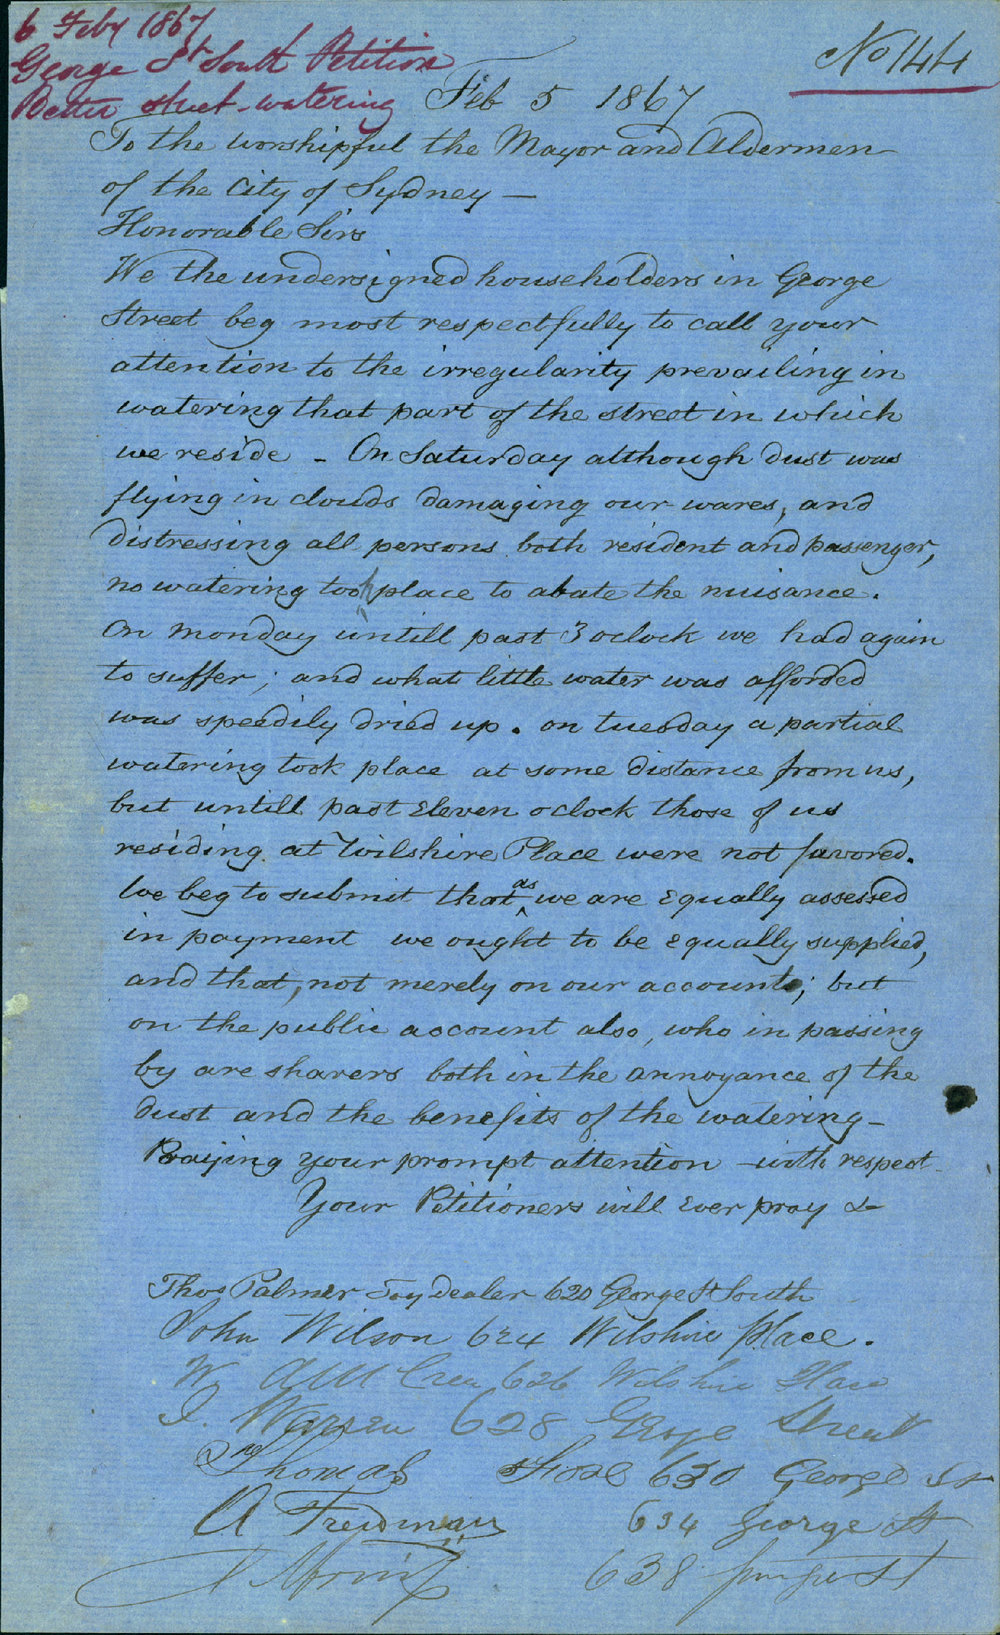 6 Feby 1867
George St South Petition
Better street-watering
No 144
Feb 5 1867
To the worshipful the Mayor and Aldermen
of the City of Sydney —
Honorable Sirs
We the undersigned householders in George
Street beg most respectfully to call your
attention to the irregularity prevailing in
watering that part of the street in which
we reside - On Saturday although dust was
flying in clouds damaging our wares, and
distressing all persons both resident and passenger,
no watering took place to abate the nuisance.
On Monday untill past 3 oclock we had again
to suffer; and what little water was afforded
was speedily dried up. on tuesday a partial
watering took place at some distance from us,
but untill past Eleven oclock those of us
residing at Wilshire Place were not favored.
We beg to submit that as we are Equally assessed
in payment we ought to be Equally supplied,
and that, not merely on our accounts; but
on the public account also, who in passing
by are sharers both in the annoyance of the
dust and the benefits of the watering -
Praying your prompt attention - with respect
Your Petitioners will Ever pray &
Thos Palmer Toy dealer 620 George St South
John Wilson 624 Wilshire Place.
W 626 Wilshire Place
J. 628 George Street
Thomas 630 George St
A Freidman 634 George St
638 George St